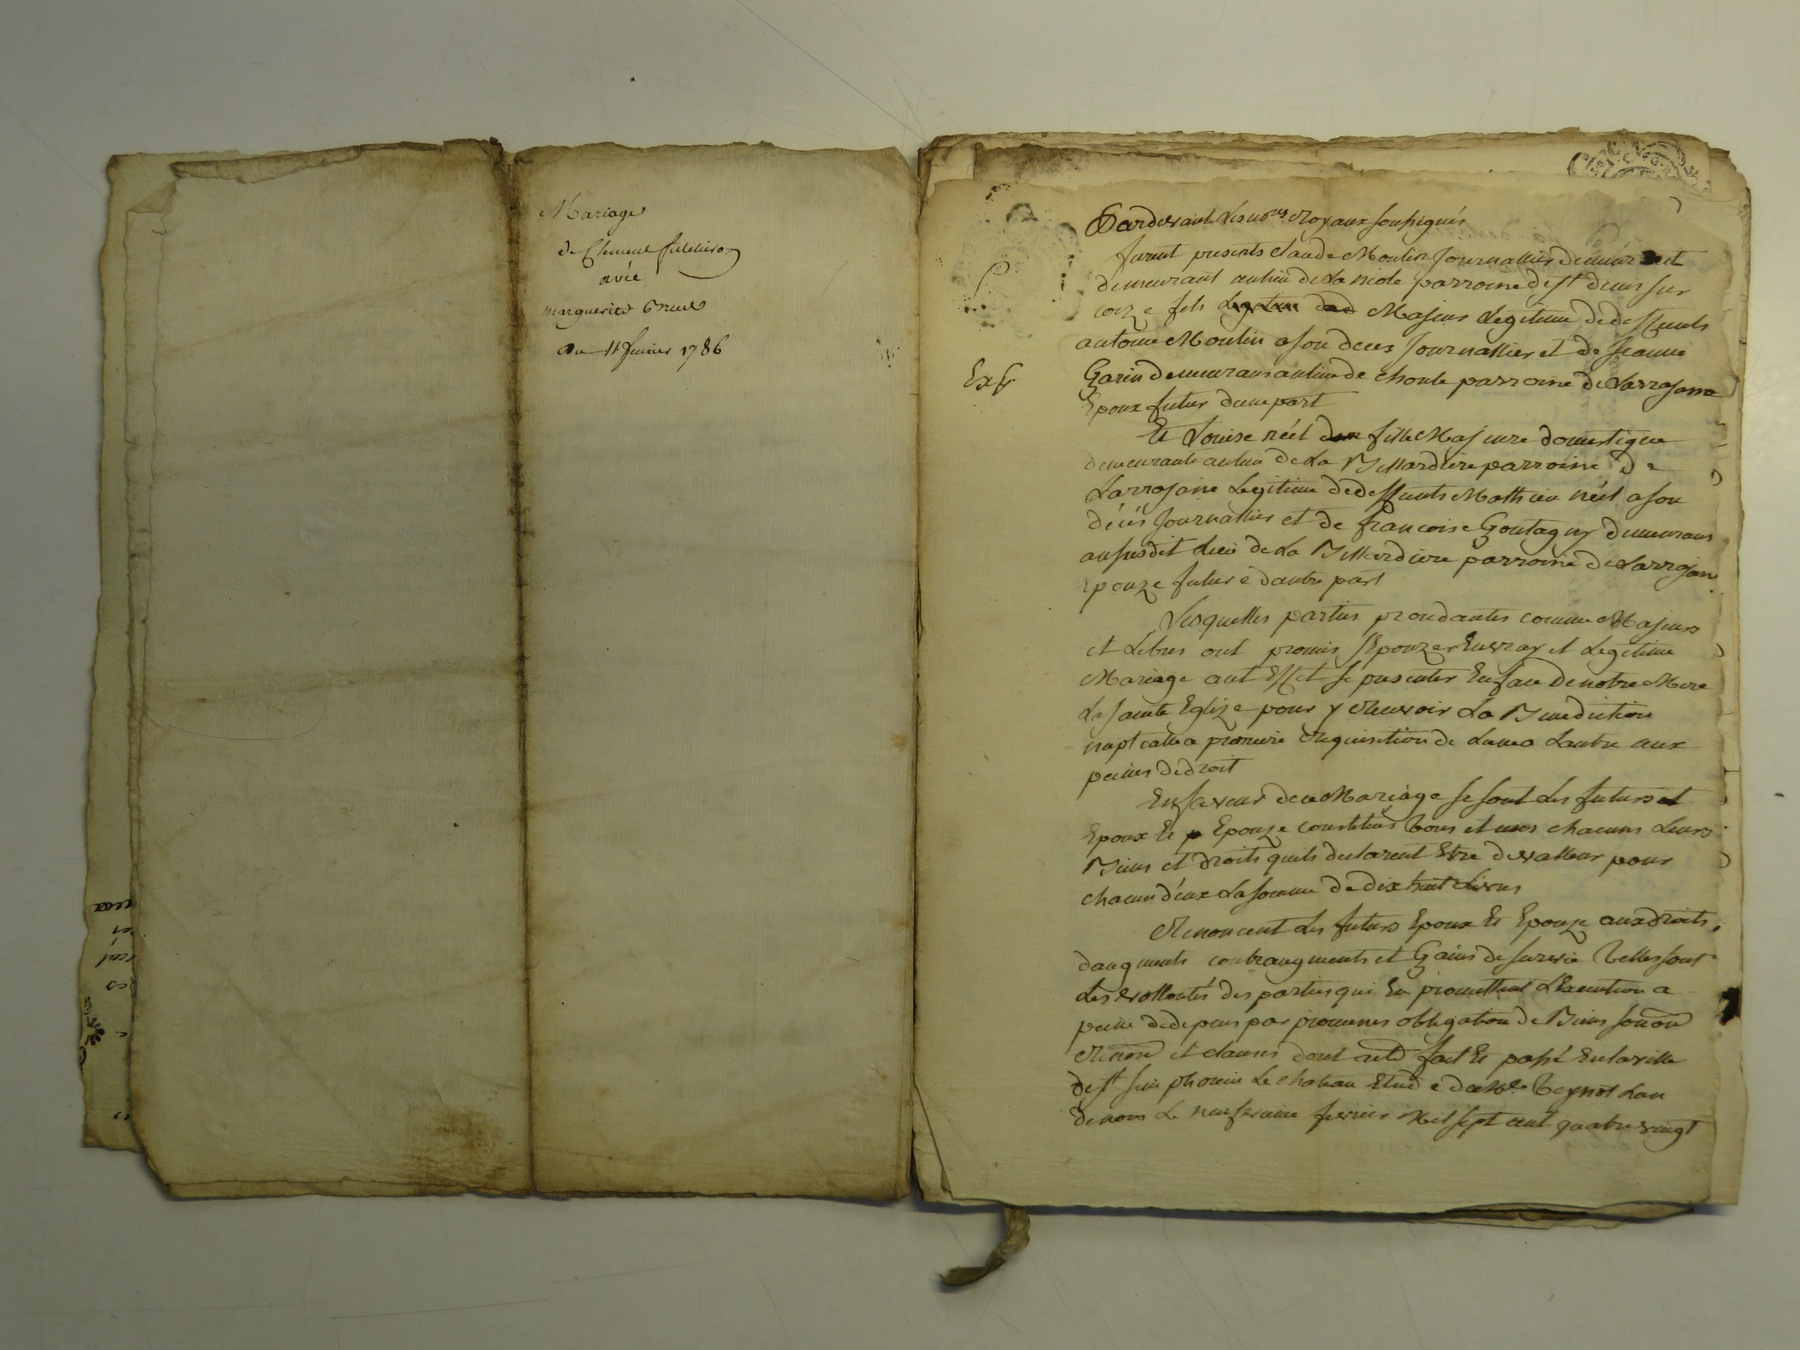 Mariage
de Clement
avec
marguerite
du 11 fevrier 1786
Pardevant Les no.res Royaux soussignés
furent presents Claude Moulin Journallier
demeurant au lieu de La parroisse de st denis sur
coize fils Majeur Legitime de deffunts
antoine Moulin a son deces Journallier et de Jeanne
Exp
Garin demeurans au lieu de parroisse de Larrajasse
Epoux futur dune part
Et Louise néel fille Majeure domestique
demeurante au lieu de La Billardiere parroisse de
Larrajasse Legitime de deffunts Mathieu néel a son
décés Journallier et de francoise Goutagny demeurans
au susdit lieu de La Billardiere parroisse de Larrajasse
Epouze future dautre part
Lesquelles parties comme Majeurs
et Libres ont promis sEpouzer En vray et Legitime
Mariage a cet Effet se presenter En face de notre Mere
La sainte Eglize pour y Recevoir La Benediction
nuptialle a premiere Requisition de Lune a Lautre aux
peines de droit
En faveur de ce Mariage se sont Les futurs
Epoux Et Epouze constitués tous et uns chacuns Leurs
Biens et droits quils declarent Etre de valleur pour
chacun déux La somme de dix huit Livres
Renoncent Les futurs Epoux Et Epouze aux droits
daugments contraugments et Gains de survie telles sont
Les vollontés des parties qui En promettent LExecution a
peine de depens par promesses obligation de Biens
et clauses dont acte fait Et passé En la ville
de st simphorien Le chateau Etude de Me L'un
de nous Le neufvieme fevrier Mil sept cent quatre vingt